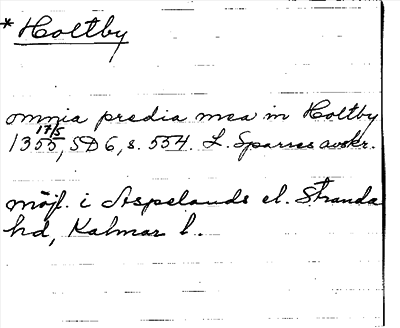 * Holtby
omnia predia mea in Holtby
1355 17/5, SD 6, s. 554. L. Sparres avskr.
möjl. i Aspelands el. Stranda
hd, Kalmar l.